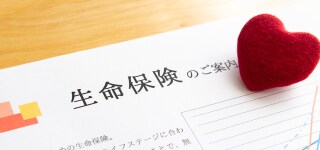 生命保険のご案内
の生命保険。
イフステージに合わ
ことで、無